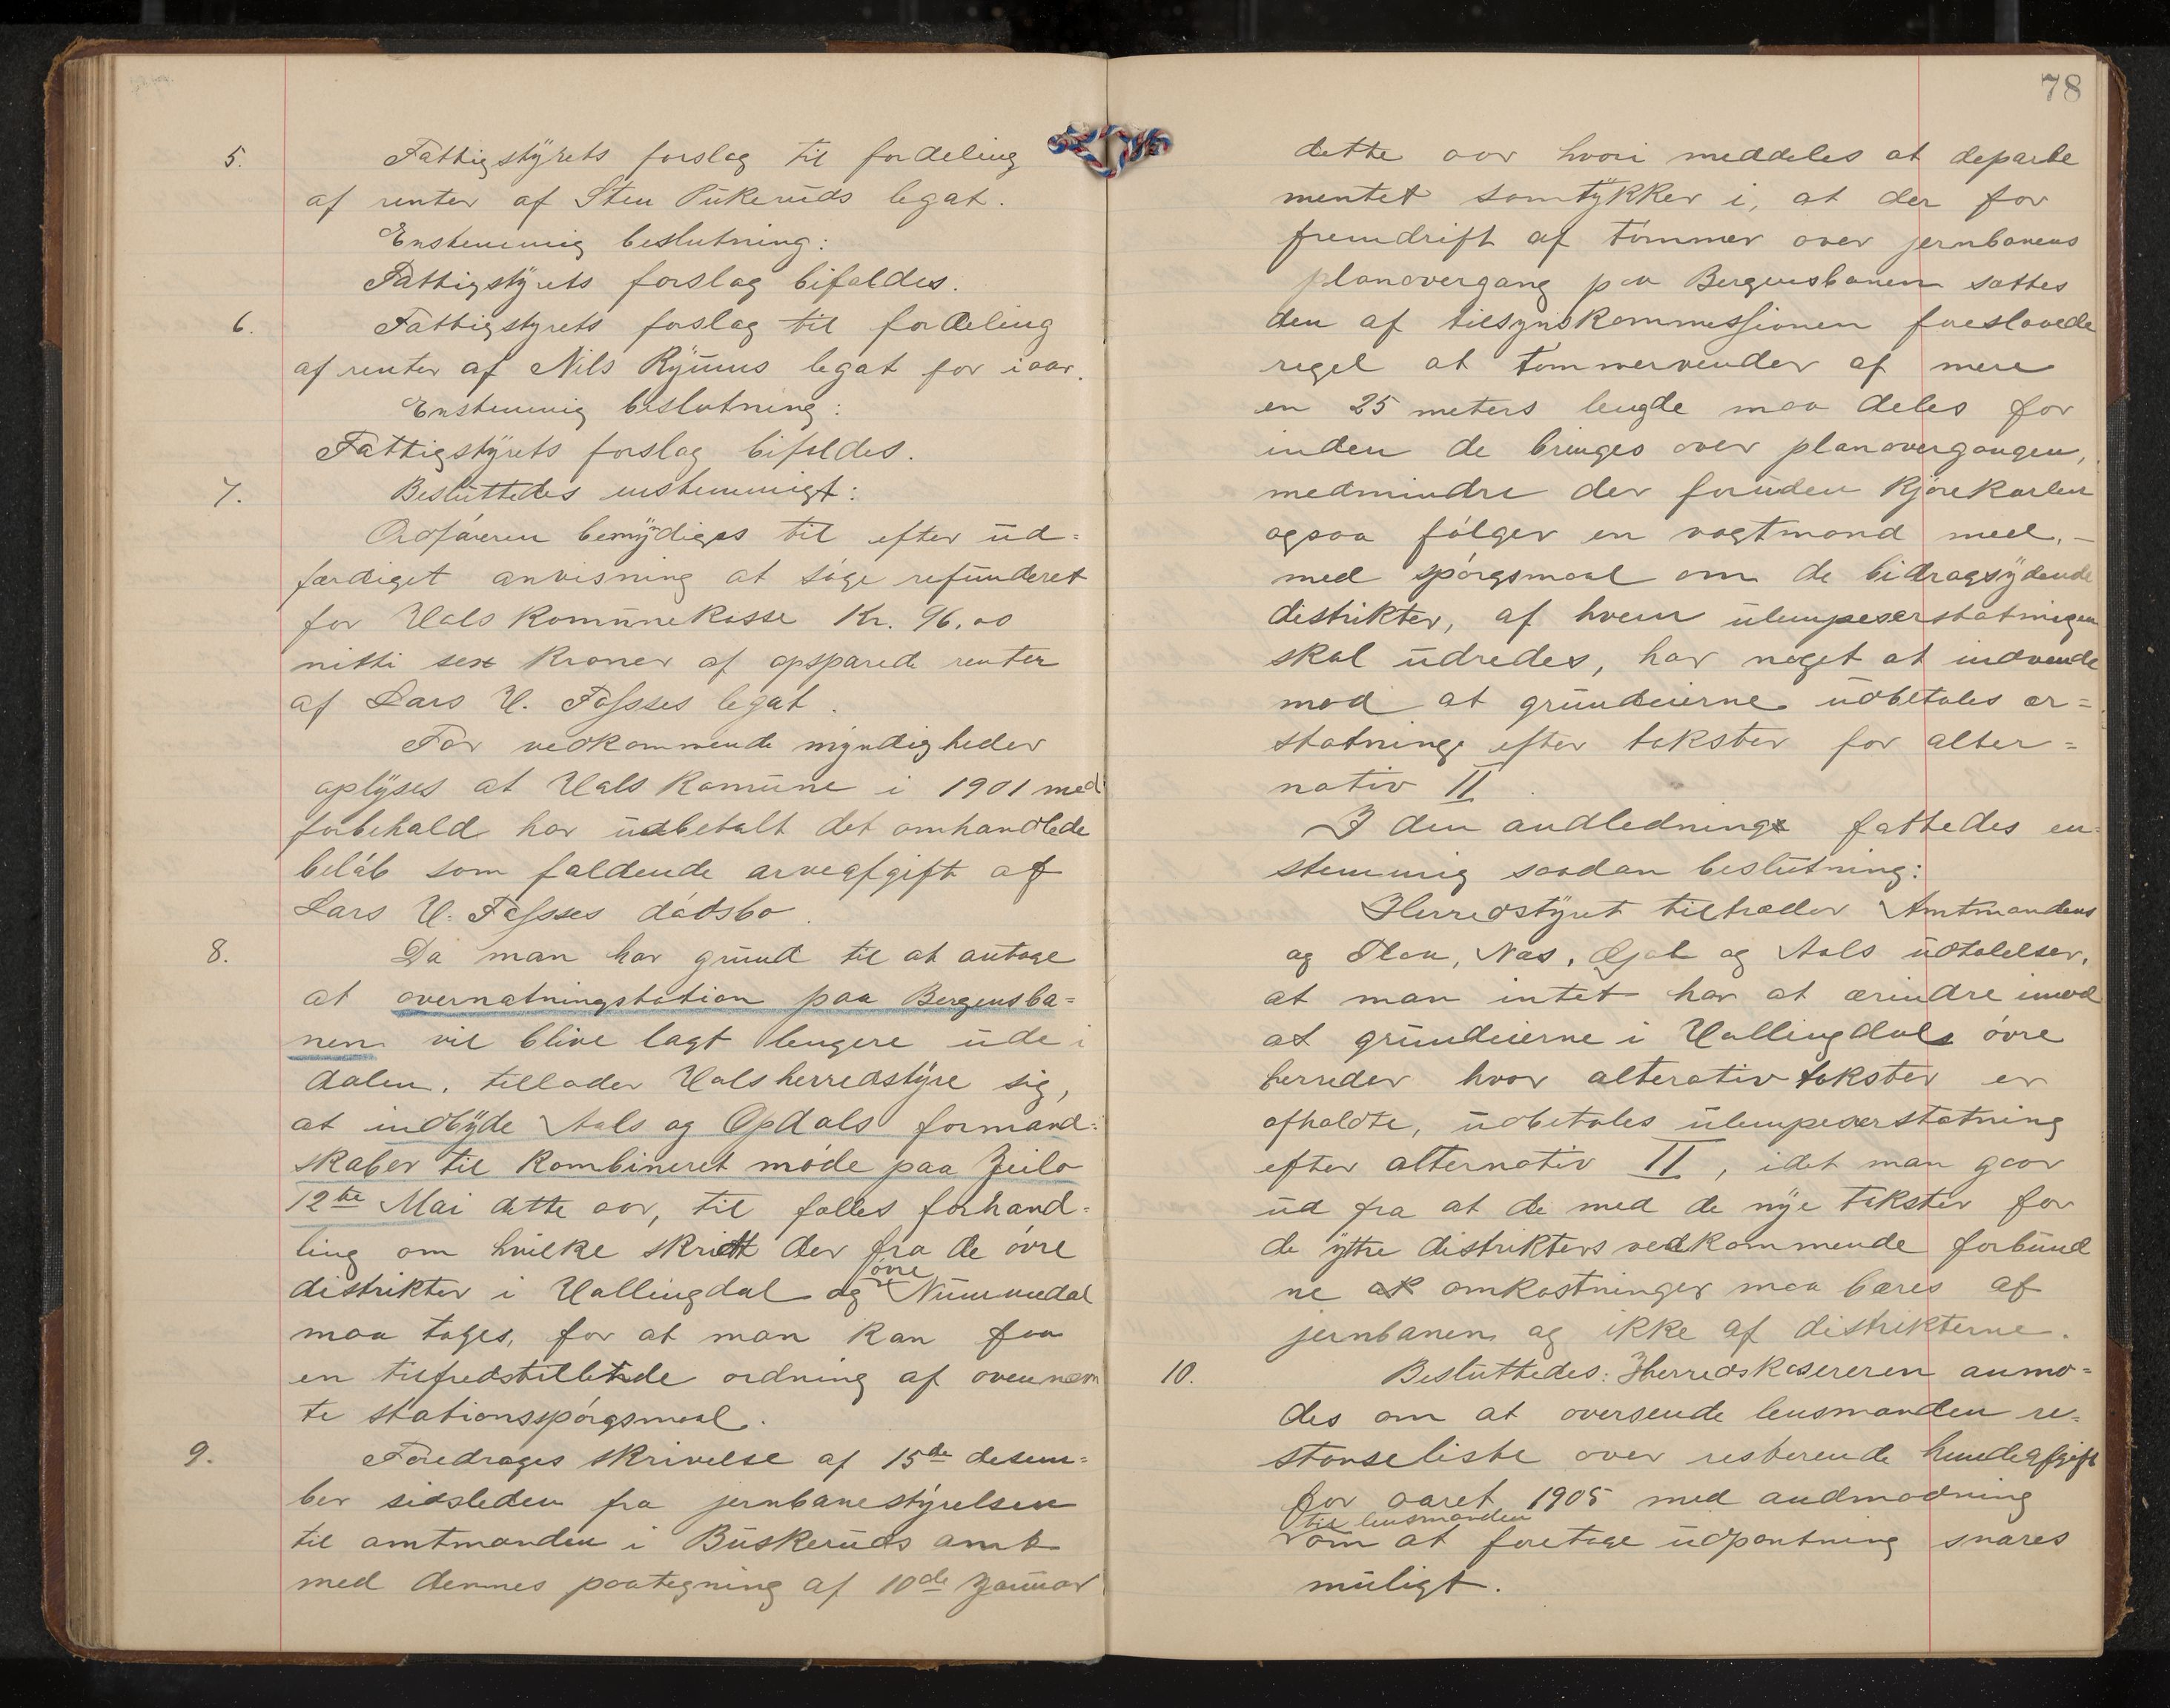 5. Fattigstÿrets forslag til fordeling
af renter af Sten Pukeruds legat.
Enstemmig beslutning:
Fattigstÿrets forslag bifaldes.
6. Fattigstyrets forslag til fordeling
af renter af Nils legat for iaar.
Enstemmig beslutning:
Fattigstÿrets forslag bifaldes.
7. Besluttedes enstemmigt:
Ordføreren bemÿndiges til efter ud=
færdiget anvisning at søge refunderet
for Hols Komunekasse Kr. 96.00
nitti sex Kroner af opsparede renter
af Lars H. Fosses legat.
For vedkommende myndigheder
oplÿses at Hols Komune i 1901 med
forbehold har udbetalt det omhandlede
beløb som faldende arveafgift af
Lars H. Fosses dødsbo.
8. Da man har grund til at antage
at overnatningstation paa Bergensba=
nen vil blive lagt lengere ude i
dalen, tillader Hols herredstÿre sig,
at indbÿde Aals og Opdals formand=
skaber til Kombineret møde paa Jeilo
12te Mai dette aar, til fælles forhand=
ling om hvilke skridt der fra de øvre
distrikter i Hallingdal og øvre Nummedal
maa tages, for at man kan faa
en tilfredstillende ordning af ovennæm
te stationsspørgsmaal.
9. Foredrages skrivelse af 15de desem=
ber sidsleden fra jernbanestÿrelsen
til amtmanden i Buskeruds amt
med dennes paategning af 10de Januar
78
dette aar hvori meddeles at departe
mentet samtÿkker i, at der for
fremdrift af tømmer over jernbanens
planovergang paa Bergensbanen sættes
den af tilsynskommissionen foreslaaede
regel at tømmervender af mere
en 25 meters lengde maa deles for
inden de bringes over planovergangen,
medmindre der foruden Kjørekarlen
ogsaa følger en vagtmand med, —
med spørgsmaal om de bidragsÿdende
distrikter, af hvem ulempeserstatningen
skal udredes, har noget at indvende
mod at grundeierne udbetales er=
statning efter takster for alter=
nativ II.
I den andledning fattedes en=
stemmig saadan beslutning:
Herredstÿret tiltræder Amtmandens
og Flaa, Næs, Gjøl og Aals udtalelser,
at man intet har at erindre imod
at grundeierne i Hallingdals øvre
herreder hvor alterativ takster er
afholdte, udbetales ulempeserstatning
efter alternativ II, idet man gaar
ud fra at de med de nÿe takster for
de ÿtre distrikters vedkommende forbund
ne omkostninger maa bæres af
jernbanen og ikke af distrikterne.
10. Besluttedes: Herredskasereren anmo=
des om at oversende lensmanden re=
stanseliste over resterende hundeafgift
for aaret 1905 med andmodning
til lensmanden
om at foretage udpantning snares
muligt.